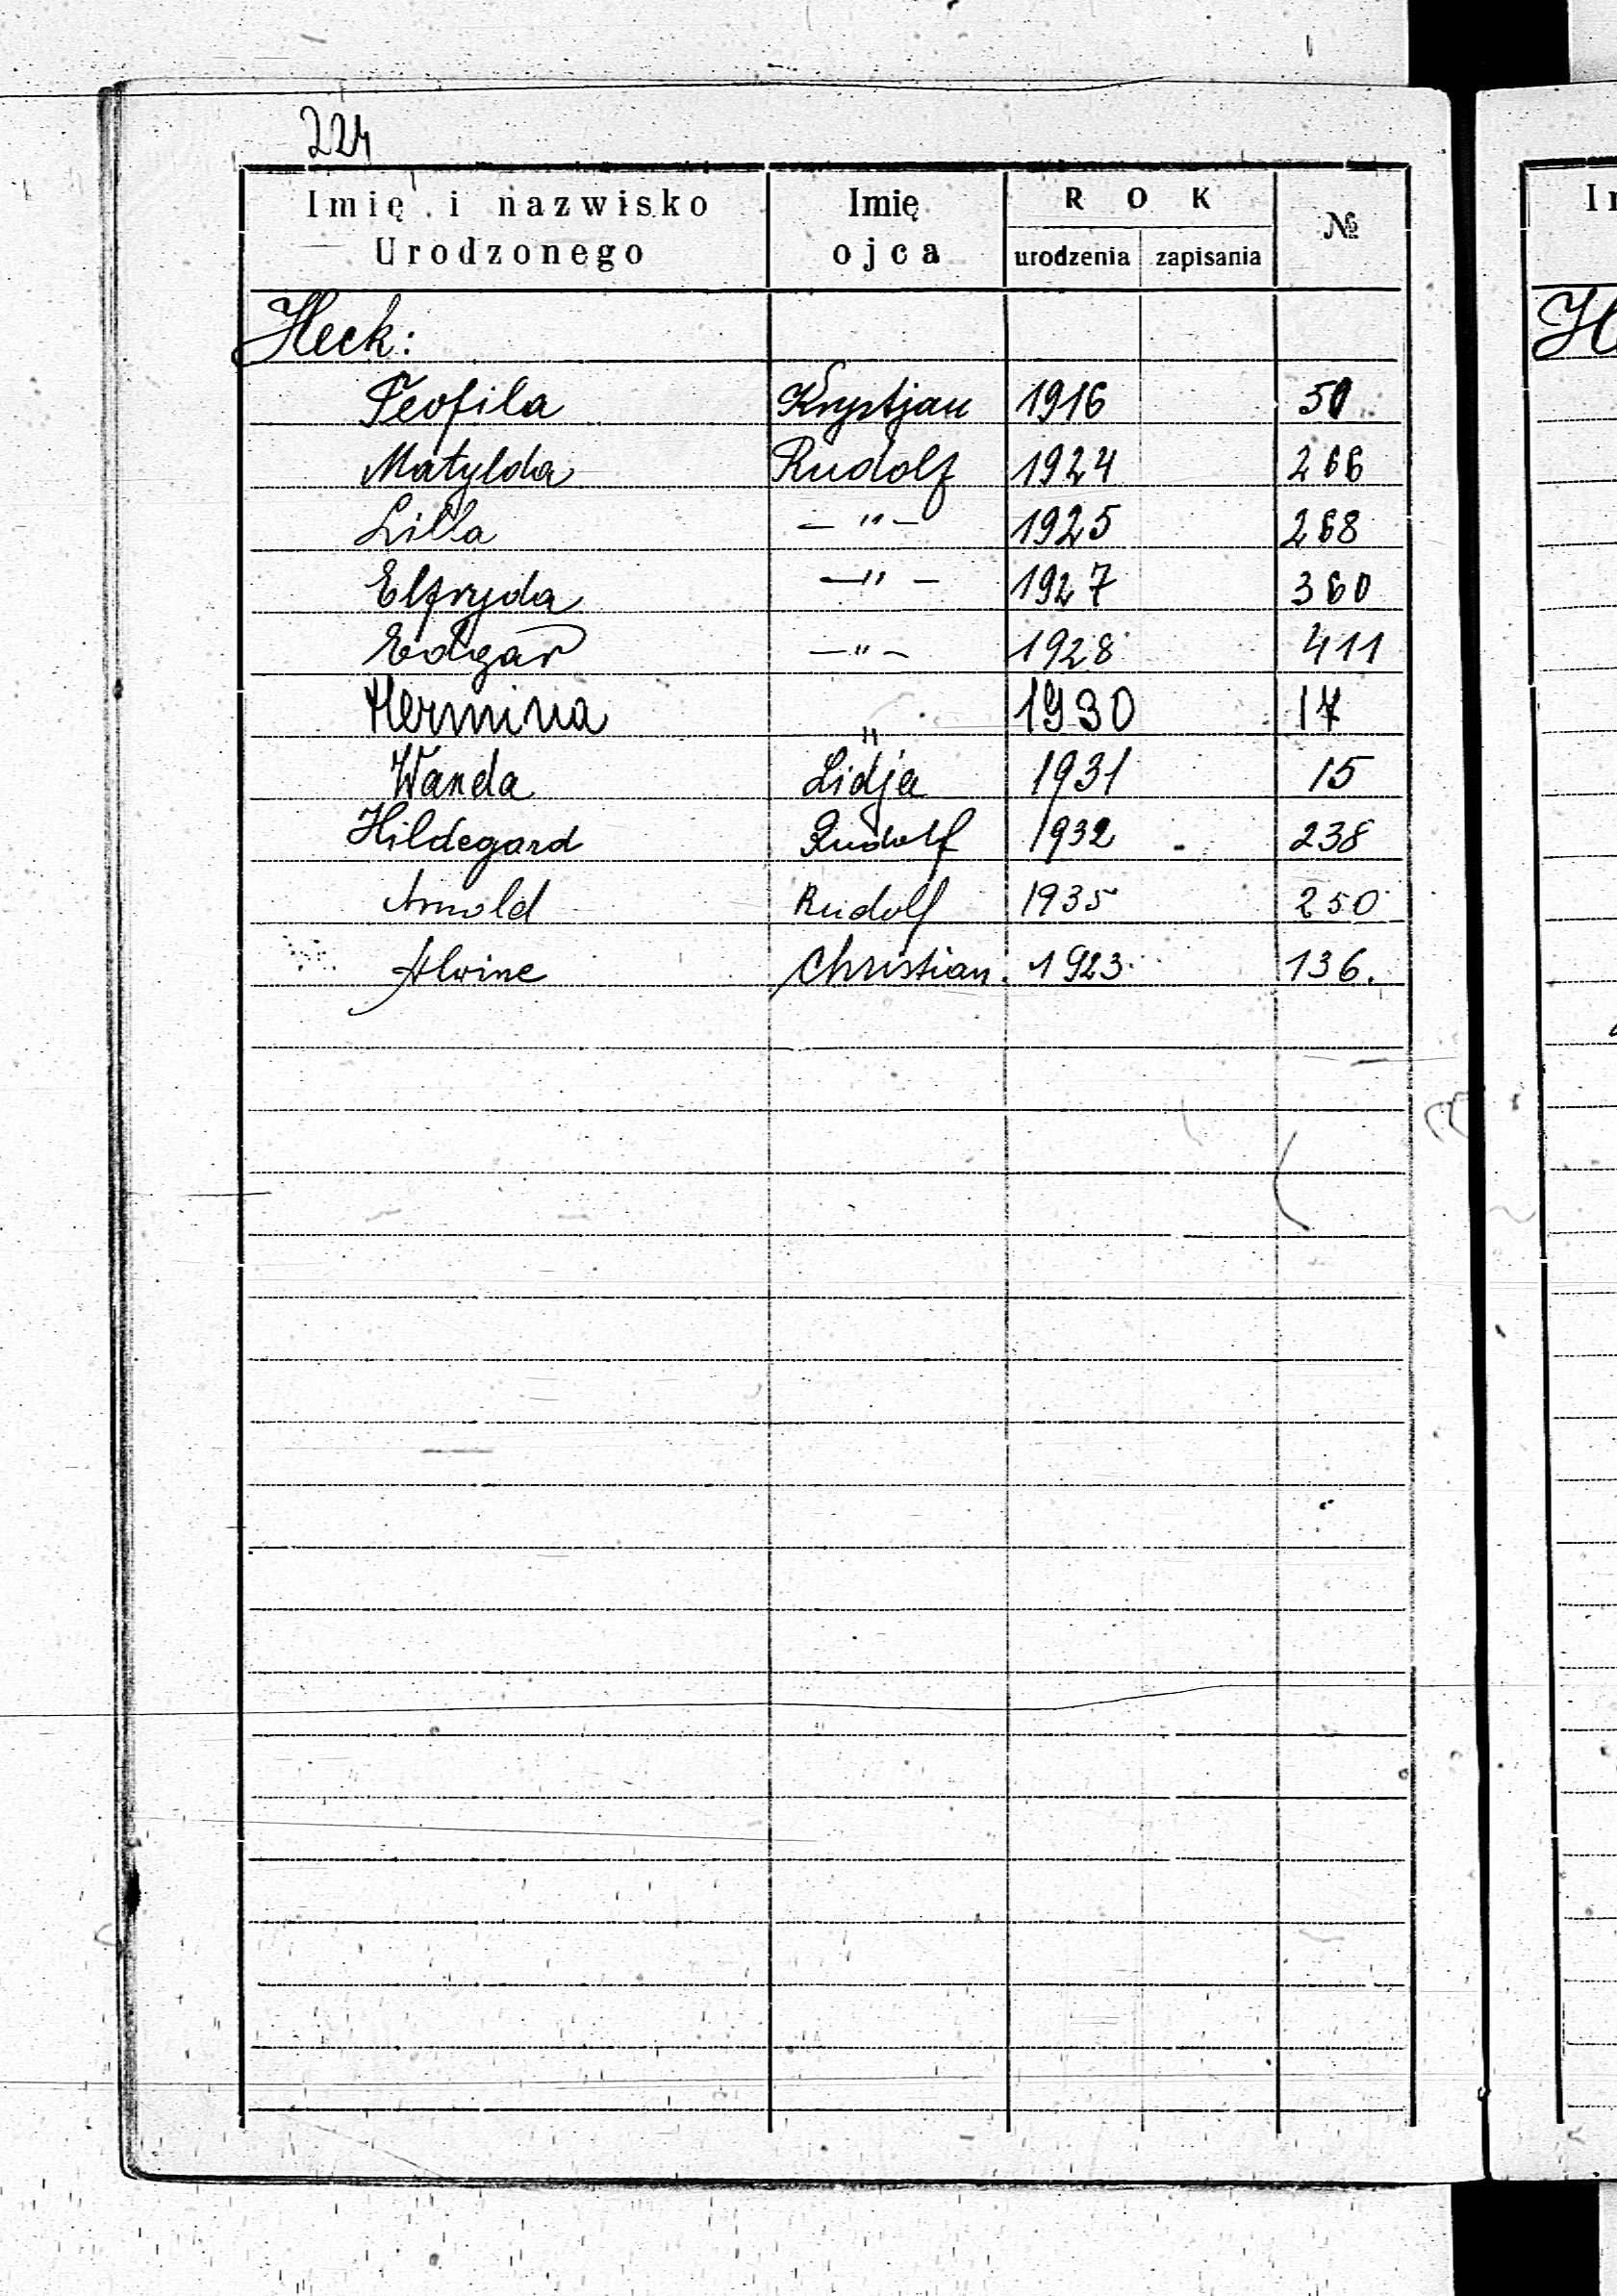 224
Imię i nazwisko Urodzonego Imię ojca ROK urodzenia zapisania №
Heck:
Teofila Krystjan 1916 50
Matylda Rudolf 1924 266
Lilla — " — 1925 268
Elfryda — " — 1927 360
Edgar — " — 1928 411
Hermina " 1930 17
Wanda Lidja 1931 15
Hildegard Rudolf 1932 238
Arnold Rudolf 1935 250
Alwine Christian. 1923 136.